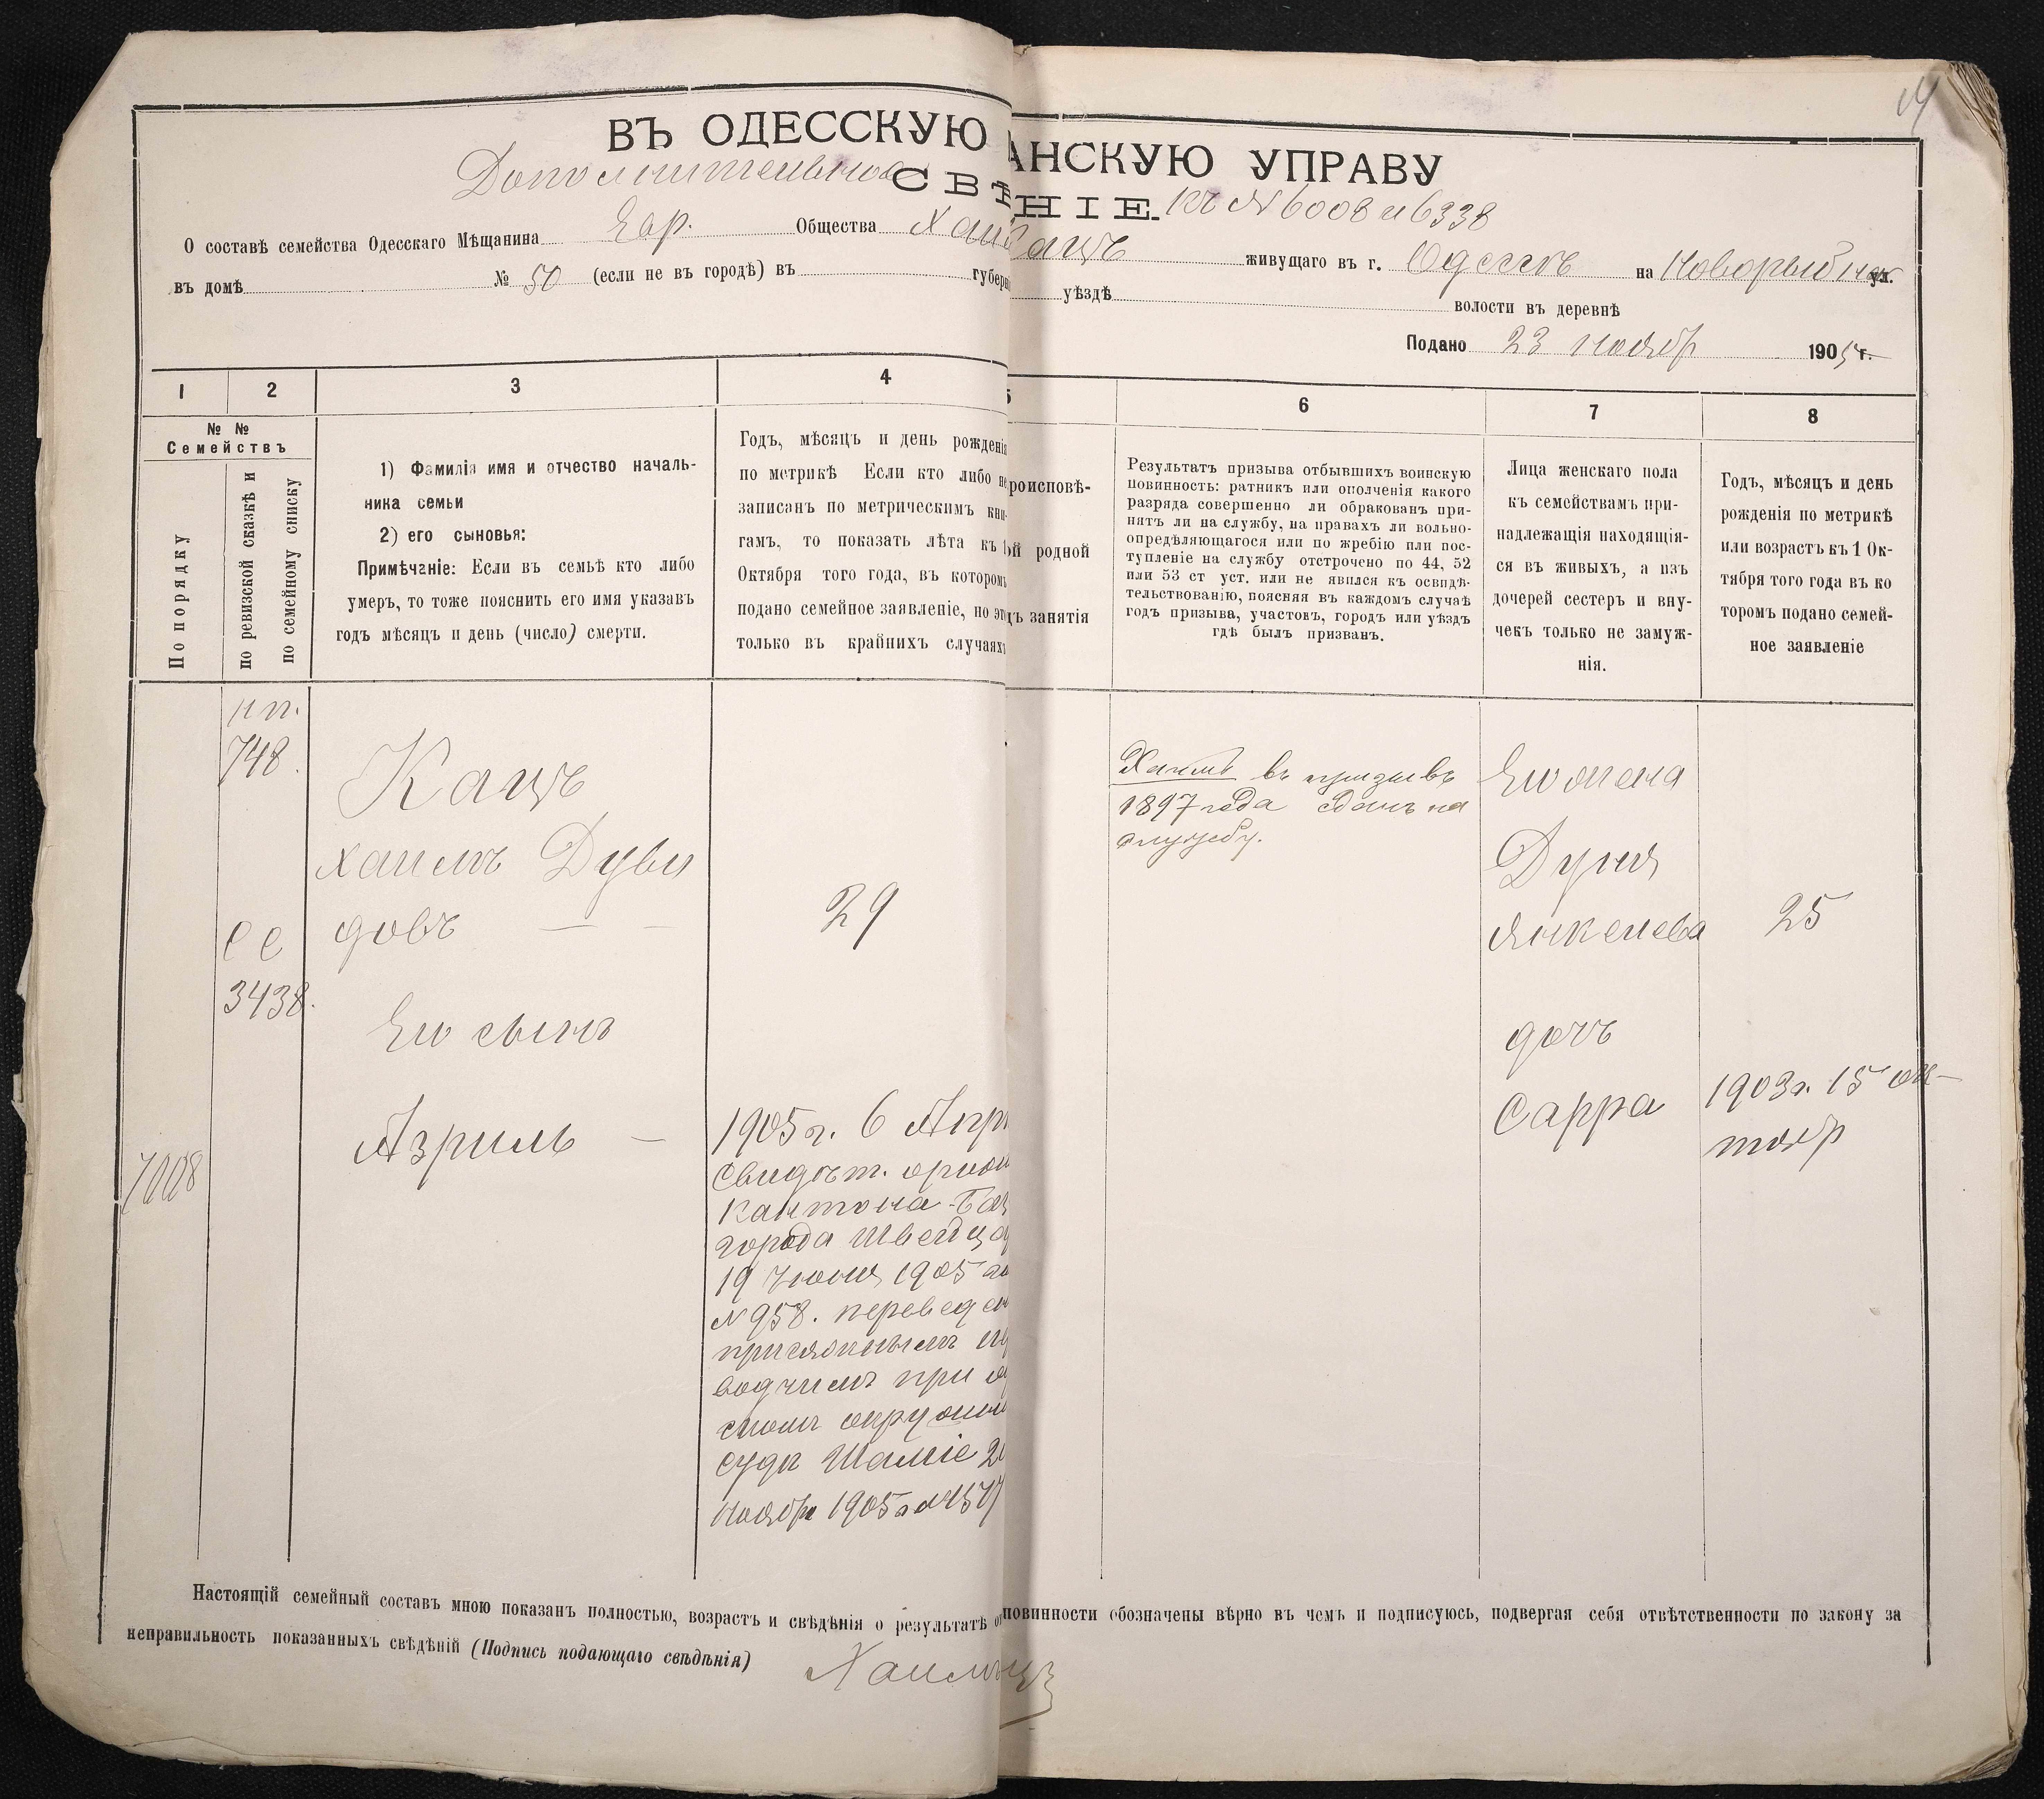 14
ВЪ ОДЕССКУЮ АНСКУЮ УПРАВУ
Дополнительное СВѢ НІЕ. къ № 6008 и 6338
О составѣ семейства Одесскаго Мѣщанина Евр. Общества Хаи Кацъ живущаго въ г. Одессѣ на Новорыбной ул.
въ домѣ № 50 (если не въ городѣ) въ губерн уѣздѣ волости въ деревнѣ
Подано 23 ноябр 1905 г.
1 2 3 4 5 6 7 8
№ №
Семействъ
По порядку
по ревизской сказкѣ и
по семейному списку
1) Фамилія имя и отчество началь-
ника семьи
2) его сыновья:
Примѣчаніе: Если въ семьѣ кто либо
умеръ, то тоже пояснить его имя указавъ
годъ мѣсяцъ и день (число) смерти.
Годъ, мѣсяцъ и день рожденія
по метрикѣ Если кто либо не
записанъ по метрическимъ кни-
гамъ, то показать лѣта къ 1
Октября того года, въ которомъ
подано семейное заявленіе, но это
только въ крайнихъ случаяхъ
роисповѣ-
ой родной
дъ занятія
Результатъ призыва отбывшихъ воинскую
повинность: ратникъ или ополченія какого
разряда совершенно ли обракованъ при-
нятъ ли на службу, на правахъ ли вольно-
опредѣляющагося или по жребію или пос-
тупленіе на службу отстрочено по 44, 52
или 53 ст уст. или не явился къ освидѣ-
тельствованію, поясняя въ каждомъ случаѣ
годъ призыва, участовъ, городъ или уѣздъ
гдѣ былъ призванъ.
Лица женскаго пола
къ семействамъ при-
надлежащія находящія-
ся въ живыхъ, а изъ
дочерей сестеръ и вну-
чекъ только не замуж-
нія.
Годъ, мѣсяцъ и день
рожденія по метрикѣ
или возрастъ къ 1 Ок-
тября того года въ ко
торомъ подано семей-
ное заявленіе
нп.
748.
се
3438.
7008
Кацъ
Хаимъ Дуви
довъ — —
Его сынъ
Азриль —
29
1905 г. 6 Апр
Свидѣт.
Кантона Баз
города Швейца
19 Іюня 1905 го
№ 958. переведен
присяжнымъ пе
водчикомъ при о
скомъ окружн
судѣ 2
Ноября 1905 г
Хаимъ въ призывъ
1897 года сданъ на
службу.
Его жена
Дуня
Янкелева
25
дочь
Сарра
1903 г. 15 ок-
тябр
Настоящій семейный составъ мною показанъ полностью, возрастъ и свѣдѣнія о результатѣ о повинности обозначены вѣрно въ чемъ и подписуюсь, подвергая себя отвѣтственности по закону за
неправильность показанныхъ свѣдѣній (Подпись подающаго свѣдѣнія)